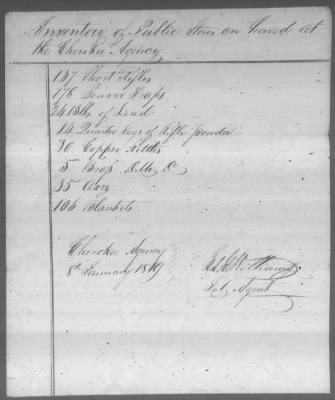 Inventory of Public Stores on hand at
the Cherokee Agency
157 Short Rifles
178 Beaver Traps
2415 lbs of Lead
14 Quarter kegs of Rifle powder
30 Copper Kettles
5 Brass Ditto Do
35 Axes
106 Blankets
Cherokee Agency
8th January 1819
Agent